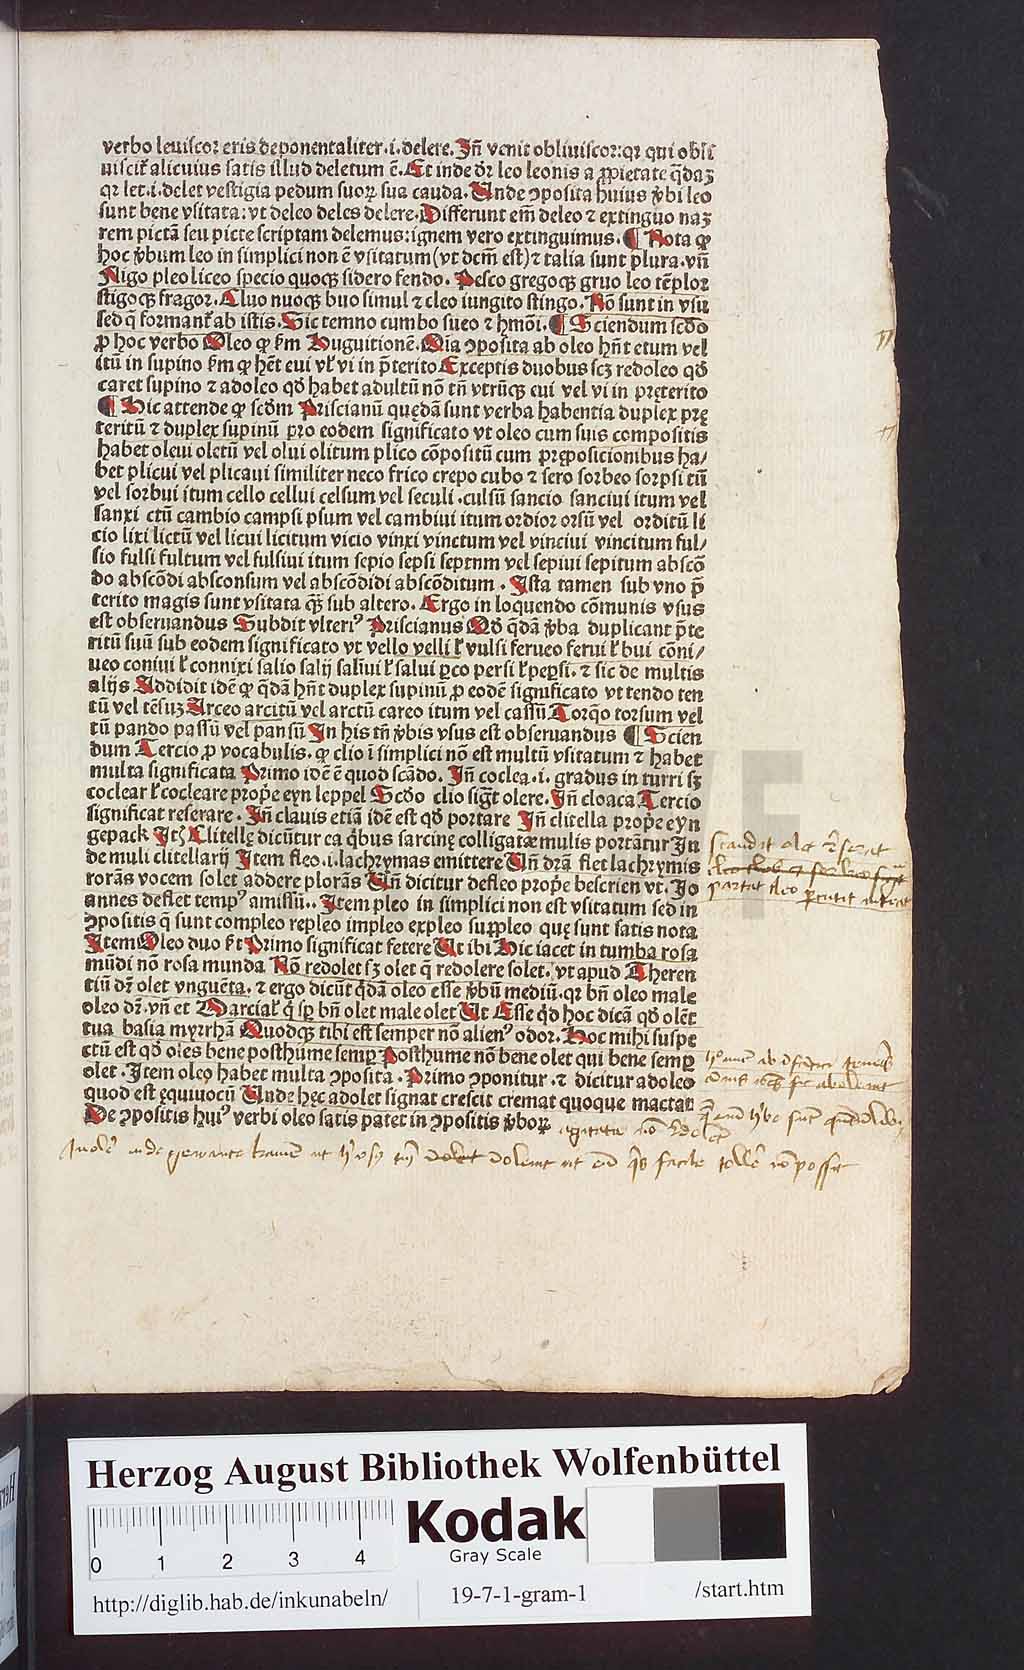 verbo leuiscor eris deponentaliter .i. delere. Jñ venit obliuiscor: qꝛ qui obli
uiscit̃ alicuius satis illud deletum ē. Et inde dr̃ leo leonis a ꝓprietate q̄daꝫ
qꝛ let .i. delet vestigia pedum suoꝝ sua cauda. Unde ꝯposita huius v̄bi leo
sunt bene vsitata: vt deleo deles delere. Differunt em̃ deleo ⁊ extinguo naꝫ
rem pictā seu picte scriptam delemus: ignem vero extinguimus. ¶ Nota ꝙ
hoc v̄bum leo in simplici non ē vsitatum (vt dcm̄ est) ⁊ talia sunt plura. vñ
Nigo pleo liceo specio quoqꝫ sidero fendo. Pesco gregoqꝫ gruo leo tēploꝛ
stigoqꝫ fragor. Cluo nuoqꝫ buo simul ⁊ cleo iungito stingo. Nō sunt in vsu
sed q̄ formant̃ ab istis. Sic temno cumbo sueo ⁊ hm̄oi. ¶ Sciendum scd̄o
ꝓ hoc verbo Oleo ꝙ ẜm Huguitionē. Oīa ꝯposita ab oleo hñt etum vel
itū in supino ẜm ꝙ hēt eui vl̓ vi in p̄terito Exceptis duobus scꝫ redoleo qd̄
caret supino ⁊ adoleo qd̄ habet adultū nō tñ vtrūqꝫ cui vel vi in pręterito
¶ Hic attende ꝙ scd̄m Priscianū quędā sunt verba habentia duplex prę
teritū ⁊ duplex supinū pro eodem significato vt oleo cum suis compositis
habet oleui oletū vel olui olitum plico cōpositū cum pręposicionibus ha/
bet plicui vel plicaui similiter neco frico crepo cubo ⁊ sero sorbeo sorpsi tū
vel sorbui itum cello cellui celsum vel seculi .culsū sancio sanciui itum vel
sanxi ctū cambio campsi psum vel cambiui itum ordior orsū vel orditū li
cio lixi lictū vel licui licitum vicio vinxi vinctum vel vinciui vincitum ful/
sio fulsi fultum vel fulsiui itum sepio sepsi septnm vel sepiui sepitum abscō
do abscōdi absconsum vel abscōdidi abscōditum. Ista tamen sub vno p̄
terito magis sunt vsitata q̄ꝫ sub altero. Ergo in loquendo cōmunis vsus
est obseruandus Subdit vlteri⁹ Priscianus Qd̄ q̄dā v̄ba duplicant p̄te
ritū suū sub eodem significato vt vello velli l̓ vulsi ferueo ferui l̓ bui cōni/
ueo coniui l̓ connixi salio salij saliui l̓ salui ꝑco persi l̓ peꝑsi. ⁊ sic de multis
alijs Addidit idē ꝙ q̄dā hñt duplex supinū ꝓ eodē significato vt tendo ten
tū vel tēsuꝫ Arceo arcitū vel arctū careo itum vel cassū Torq̄o torsum vel
tū pando passū vel pansū In his tñ v̄bis vsus est obseruandus ¶ Scien
dum Tercio ꝓ vocabulis. ꝙ clio ī simplici nō est multū vsitatum ⁊ habet
multa significata Primo idē ē quod scādo. Jñ coclea .i. gradus in turri sꝫ
coclear l̓ cocleare prop̄e eyn leppel Scd̄o clio sig̃t olere. Jñ cloaca Tercio
significat reserare. Jñ clauis etiā idē est qd̄ portare Jñ clitella prop̄e eyn
gepack Jtꝫ Clitellę dicūtur ea q̄bus sarcinę colligatæ mulis portātur Jn
de muli clitellarij Jtem fleo .i. lachrymas emittere Uñ drā flet lachrymis
rorās vocem solet addere plorās Uñ dicitur defleo prop̄e bescrien vt. Jo
annes deflet temp⁹ amissū.. Jtem pleo in simplici non est vsitatum sed in
ꝯpositis q̄ sunt compleo repleo impleo expleo suppleo quę sunt satis nota
Jtem Oleo duo ẜt Primo significat fetere Ut ibi Hic iacet in tumba rosa
mūdi nō rosa munda Nō redolet sꝫ olet q̄ redolere solet. vt apud Theren
tiū dꝛ olet vnguēta. ⁊ ergo dicūt q̄dā oleo esse v̄bū mediū. qꝛ bñ oleo male
oleo dꝛ. vñ et Marcial̓ q̄ sꝑ bñ olet male olet Ut Esse qd̄ hoc dicā qd̄ olēt
tua basia myrrhā Quodqꝫ tibi est semper nō alien⁹ odor. Hoc mihi suspe
ctū est qd̄ oles bene posthume semꝑ Posthume nō bene olet qui bene semꝑ
olet. Jtem oleo habet multa ꝯposita. Primo ꝯponitur .⁊ dicitur adoleo
quod est ęquiuocū Unde hęc adolet signat crescit cremat quoque mactat
De ꝯpositis hui⁹ verbi oleo satis patet in ꝯpositis v̄boꝝ
Herzog August Bibliothek Wolfenbüttel
0 1 2 3 4
Kodak
Gray Scale
http://diglib.hab.de/inkunabeln/ 19-7-1-gram-1 /start.htm